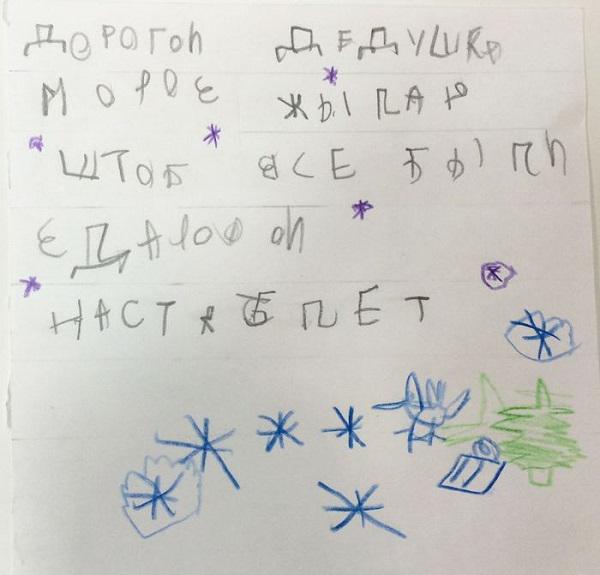 ДОРОГОЙ ДЕДУШКА
МОРОЕ ЖЫ ПАЮ
ШТОБ ВСЕ БЫ ПИ
ЕДАРОФ ОЙ
НАСТЯ Б ПЕТ